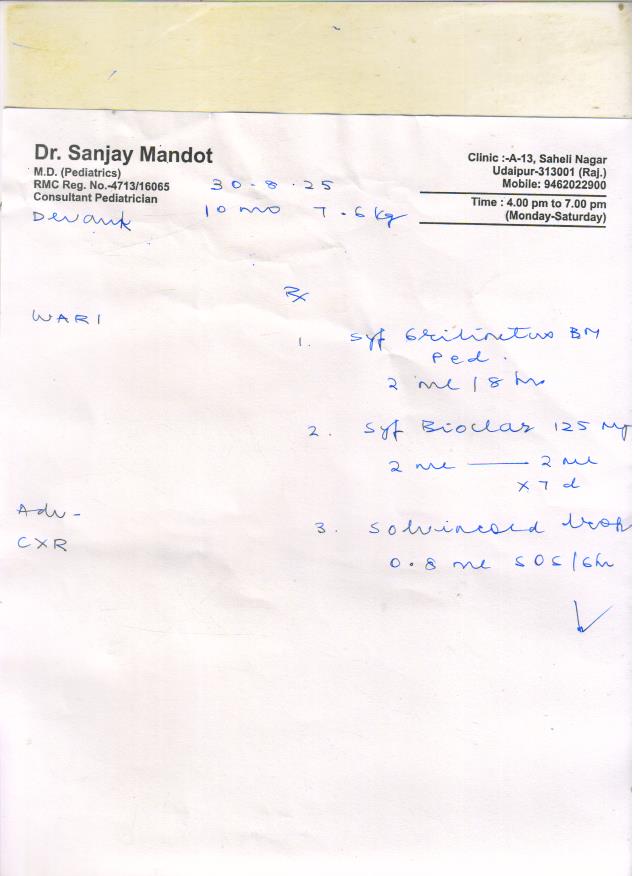 Dr. Sanjay Mandot
M.D. (Pediatrics)
RMC Reg. No.-4713/16065
Consultant Pediatrician
Clinic :-A-13, Saheli Nagar
Udaipur-313001 (Raj.)
Mobile: 9462022900
Time : 4.00 pm to 7.00 pm
(Monday-Saturday)
30-8-25
Devank 10 mo 7.6 kg
Rx
WARI
1. Syp Grilinctus BM
Ped.
2 ml / 8 hr
2. Syp Bioclar 125 mg
2 ml — 2 ml
x 7 d
Adv -
CXR
3. Solvincold
0.8 ml SOS/6hr